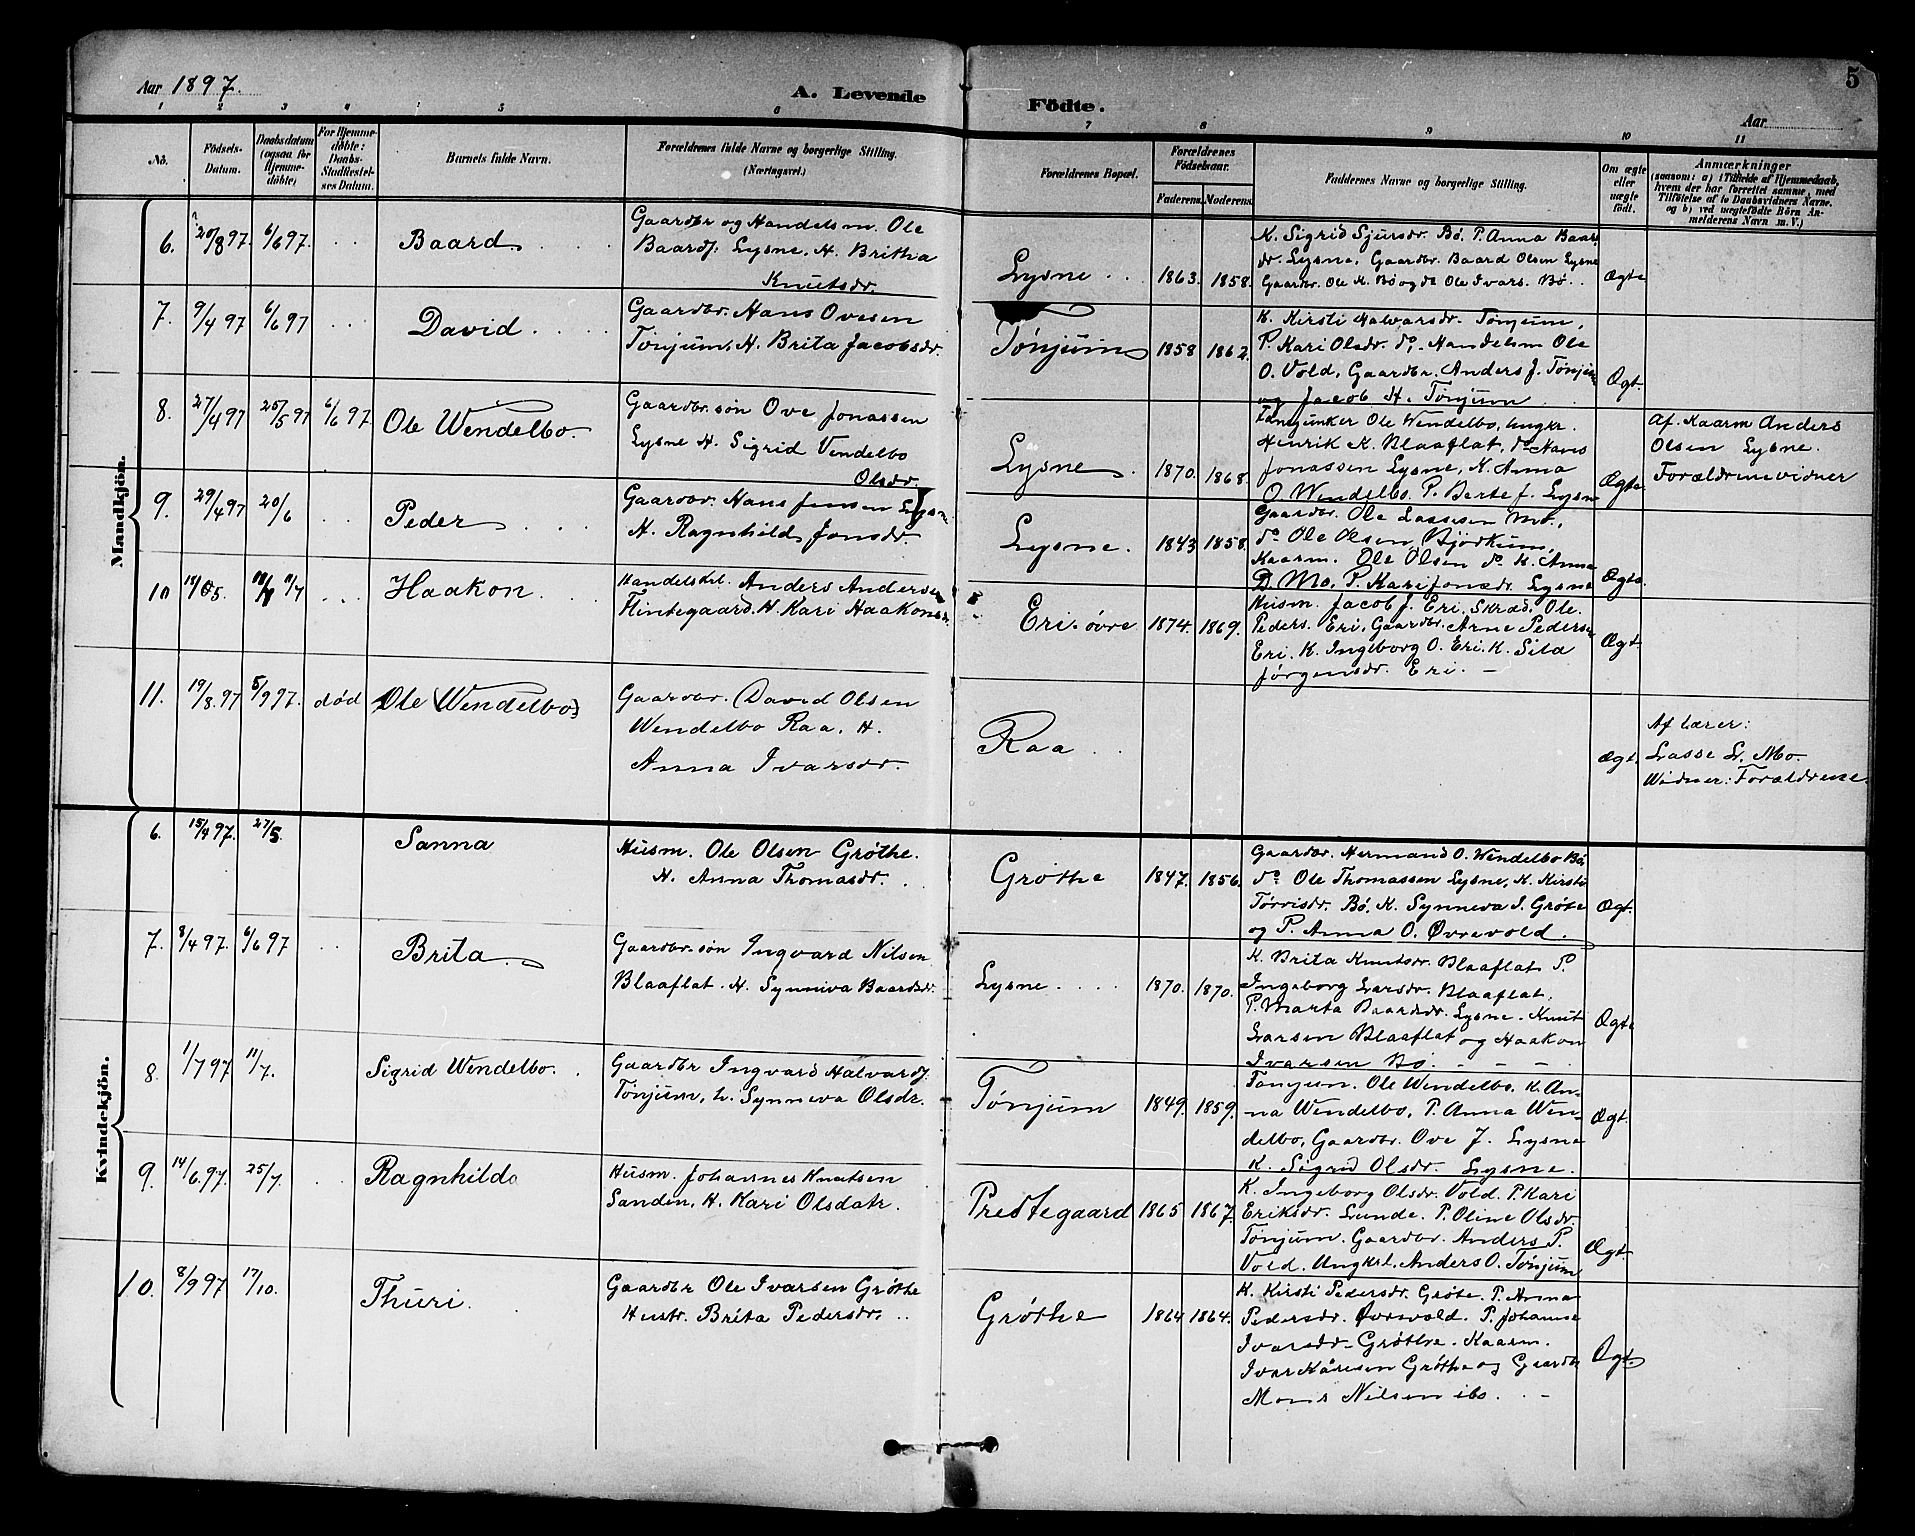 Aar 1897.
A. Levende Födte.
5
Aar
1 2 3 4 5 6 7 8 9 10 11
No.
Födsels-
Datum.
Daabsdatum
(ogsaa for
Hjemme-
döbte)
For Hjemme-
döbte:
Daabs-
Stadfæstel-
ses Datum.
Barnets fulde Navn.
Forældrenes fulde Navne og borgerlige Stilling.
(Næringsvei.)
Forældrenes Bopæl.
Forældrenes
Födselsaar.
Faderens. Moderens.
Faddernes Navne og borgerlige Stilling.
Om ægte
eller
uægte
födt.
Anmærkninger
(saasom: a) i Tilfælde af Hjemmedaab,
hvem der har forrettet samme, med
Tilföielse af to Daabsvidners Navne.
og b) ved uægtefödte Börn An-
melderens Navn m. V.)
Mandkjön.
6. 20/8 97 6/6 97. Baard
Gaardbr og Handelsm. Ole
Baardf. Lysne. H. Britha
Knutsdr.
Lysne 1863. 1858.
K. Sigrid Sjursdr. Bö. P. Anna Baar
dr. Lysne, Gaardbr. Baard Olsen Lysne
Gaardbr. Ole K. Bö og do Ole Ivars. Bö.
Ægte
7. 9/4 97 6/6 97 David
Gaardbr. Hans Ovesen
Tönjum. H. Brita Jacobsdr.
Tönjum 1858 1862.
K. Kirsti Halvarsdr. Tönjum,
P. Kari Olsdr. do, Handelsm Ole
O. Vold, Gaardbr. Anders J. Tönjum
og Jacob H. Tönjum
Ægt.
8. 27/4 97 25/5 97 6/6 97 Ole Wendelbo.
Gaardbr. sön Ove Jonassen
Lysne H. Sigrid Vendelbo
Olsdr.
Lysne 1870. 1868.
Fanejunker Ole Wendelbo, Ungkr.
Henrik K. Blaaflat, do Hans
Jonassen Lysne, K. Anna
O. Wendelbo. P. Berte J. Lysne
Ægte.
Af. Kaarm Anders
Olsen Lysne.
Forældrene vidner
9. 29/4 97 20/6 Peder
Gaardbr. Hans Jensen Lysne
H. Ragnhild Jonsdr.
Lysne. 1843 1858.
Gaardbr. Ole Lassesen Mo.,
do Ole Olsen Bjørkum,
Kaarm. Ole Olsen do K. Anna
D. Mo, P. Kari Jonsdr. Lysne
Ægte
10 11/7 Haakon
Handelskrl. Anders Andersen
Flintegaard. H. Kari Haakonsdr.
Eri. øvre 1874. 1869.
Husm. Jacob J. Eri, Skræd. Ole
Peders. Eri, Gaardbr. Arne Pedersen
Eri. K. Ingeborg O. Eri. K. Sila
Jörgensdr. Eri. —
Ægt.
11. 19/8. 97 5/9 97. död Ole (Wendelbo)
Gaardbr. David Olsen
Wendelbo Raa. H.
Anna Ivarsdr.
Raa
Ægt.
Af lærer:
Lasse L. Mo.
Widner: Forældrene
Kvindekjön.
6. 15/4 97. 27/5 Sanna
Husm. Ole Olsen Gröthe.
H. Anna Thomasdr.
Gröthe 1847. 1856.
Gaardbr. Hermand O. Wendelbo Bö,
do Ole Thomassen Lysne, K. Kirsti
Torrisdr. Bö, K. Synneva I. Gröte
og P. Anna O. Øvrevold.
Ægt.
7. 8/4 97. 6/6 97 Brita
Gaardbr. sön Ingvard Nilsen
Blaaflat. H. Synneva Baardsdr.
Lysne 1870. 1870.
K. Brita Knutsdr. Blaaflat P.
Ingeborg Larsdr. Blaaflat,
P. Marta Baardsdr. Lysne. Knut
Larsen Blaaflat og Haakon
Ivarsen Bö. - - -
Ægte
8. 1/7 97 11/7. Sigrid Wendelbo.
Gaardbr Ingvard Halvardf.
Tönjum, h. Synneva Olsdr.
Tönjum 1849. 1859.
Fanejun. Ole Wendelbo. K. An-
na Wendelbo, P. Anna Wen-
delbo, Gaardbr. Ove J. Lysne
K. Sigrid Olsdr. Lysne.
Ægt.
9. 14/6. 97. 25/7 Ragnhilda
Husm. Johannes Knutsen
Sanden. H. Kari Olsdatr.
Prestegaard 1865 1867.
K. Ingeborg Olsdr. Vold. P. Kari
Eriksdr. Lunde. P. Oline Olsdr.
Tönjum. Gaardbr. Anders P.
Vold. Ungkrl. Anders O. Tönjum
Ægt.
10. 8/9 97 17/10. Thuri.
Gaardbr Ole Ivarsen Gröthe
Hustr. Brita Pedersdr.
Gröthe 1864 1864.
K. Kirsti Pedersdr. Gröte. P. Anna
Pedersdr. Øvrevold. P. Johanne
Ivarsdr. Gröthe. Kaarm.
Ivar Kåresen Gröthe og Gaardbr
Mons Nilsen ibd.
Ægt.